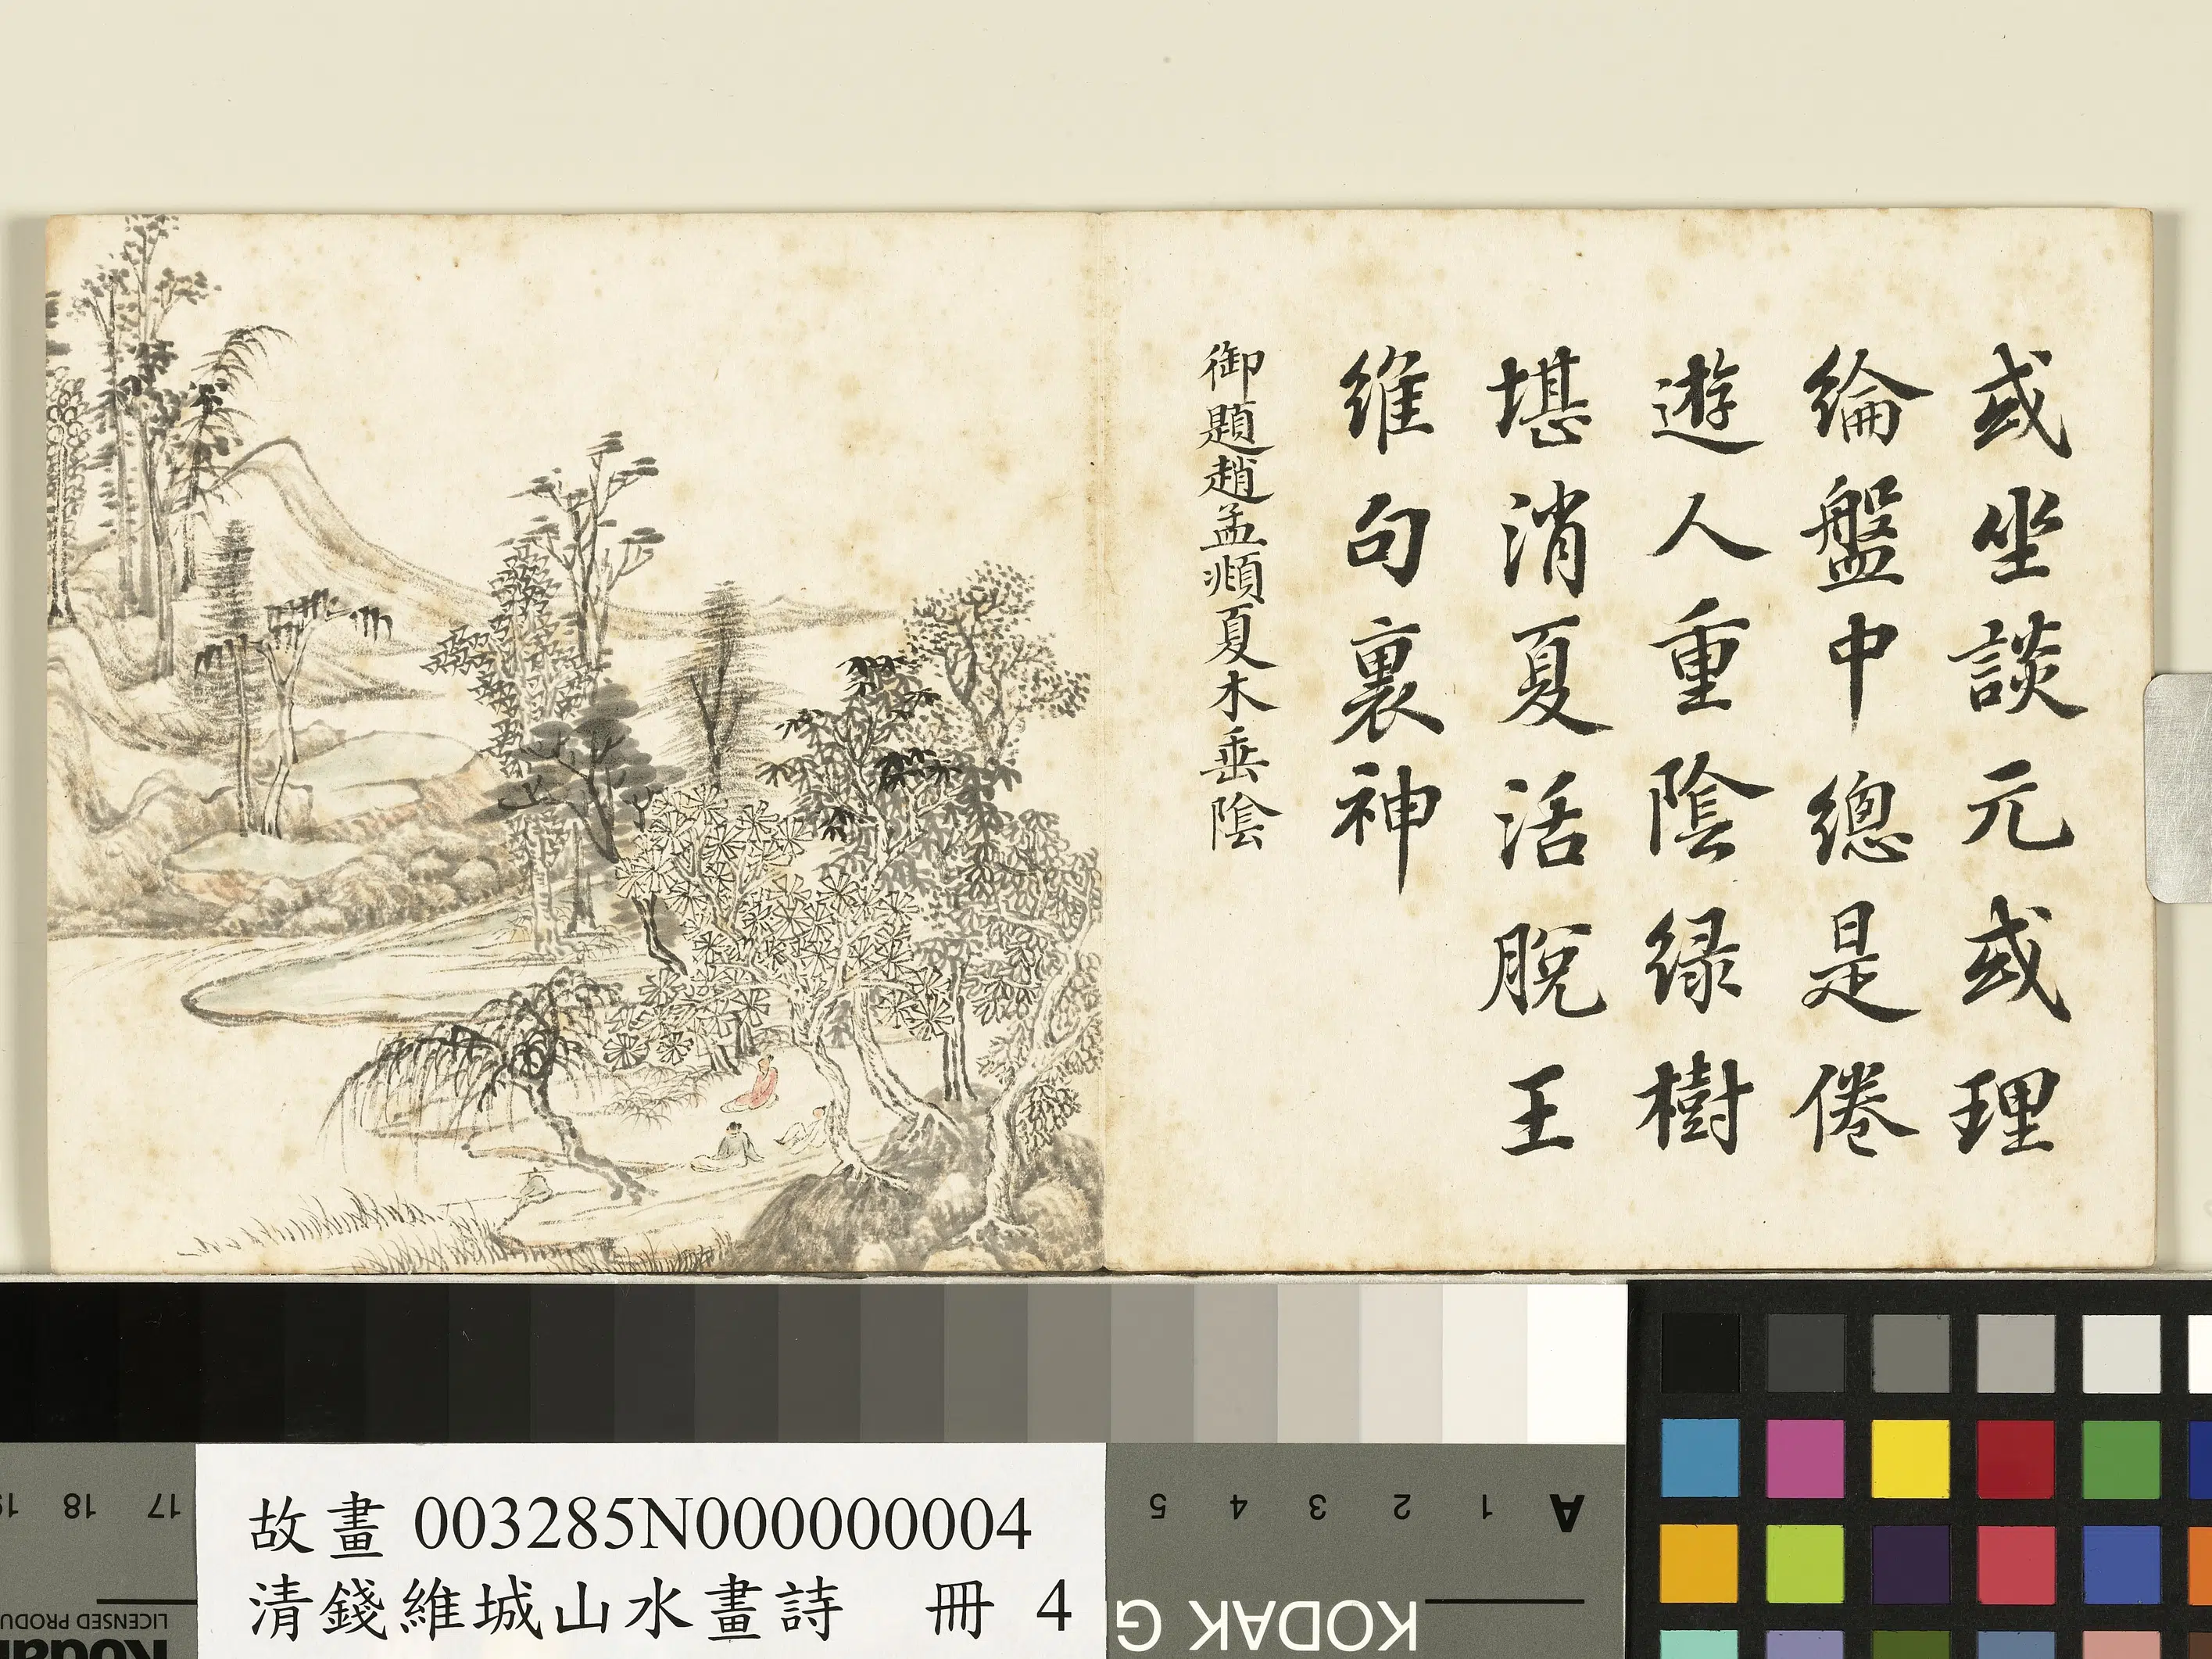 或坐談元或理
綸盤中總是倦
遊人重陰緑樹
堪消夏活脫王
維句裏神
御題趙孟頫夏木垂陰
故畫 003285N000000004
清錢維城山水畫詩 冊 4
A 1 2 3 4 5
17 18 19
KODAK G
LICENSED PRODU
Kodak